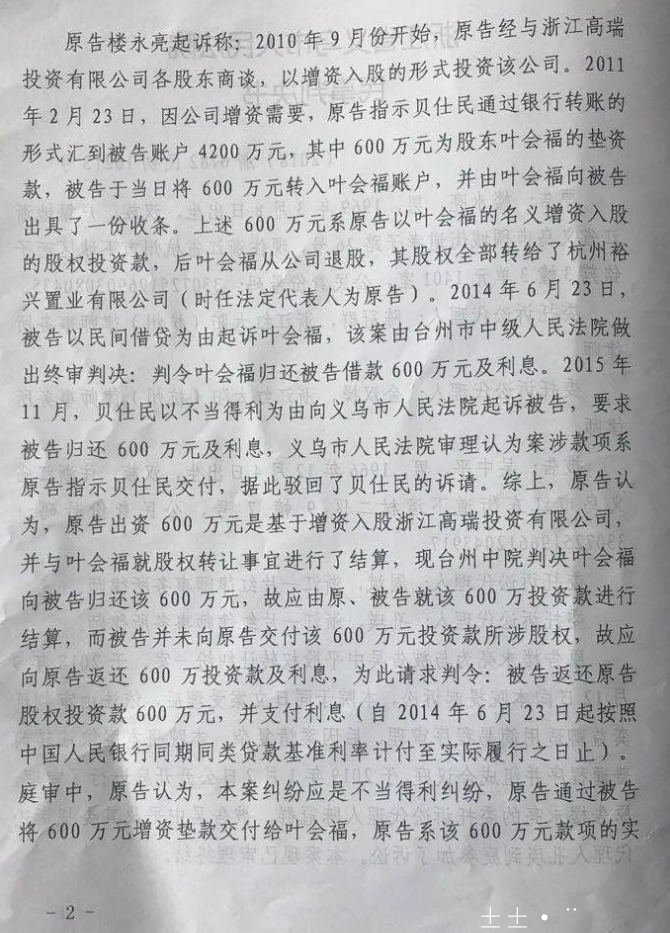 原告楼永亮起诉称：2010 年 9 月份开始，原告经与浙江高瑞
投资有限公司各股东商谈，以增资入股的形式投资该公司。2011
年 2 月 23 日，因公司增资需要，原告指示贝仕民通过银行转账的
形式汇到被告账户 4200 万元，其中 600 万元为股东叶会福的垫资
款，被告于当日将 600 万元转入叶会福账户，并由叶会福向被告
出具了一份收条。上述 600 万元系原告以叶会福的名义增资入股
的股权投资款，后叶会福从公司退股，其股权全部转给了杭州裕
兴置业有限公司（时任法定代表人为原告）。2014 年 6 月 23 日，
被告以民间借贷为由起诉叶会福，该案由台州市中级人民法院做
出终审判决：判令叶会福归还被告借款 600 万元及利息。2015 年
11 月，贝仕民以不当得利为由向义乌市人民法院起诉被告，要求
被告归还 600 万元及利息，义乌市人民法院审理认为案涉款项系
原告指示贝仕民交付，据此驳回了贝仕民的诉请。综上，原告认
为，原告出资 600 万元是基于增资入股浙江高瑞投资有限公司，
并与叶会福就股权转让事宜进行了结算，现台州中院判决叶会福
向被告归还该 600 万元，故应由原、被告就该 600 万投资款进行
结算，而被告并未向原告交付该 600 万元投资款所涉股权，故应
向原告返还 600 万投资款及利息，为此请求判令：被告返还原告
股权投资款 600 万元，并支付利息（自 2014 年 6 月 23 日起按照
中国人民银行同期同类贷款基准利率计付至实际履行之日止）。
庭审中，原告认为，本案纠纷应是不当得利纠纷，原告通过被告
将 600 万元增资垫款交付给叶会福，原告系该 600 万元款项的实
- 2 -